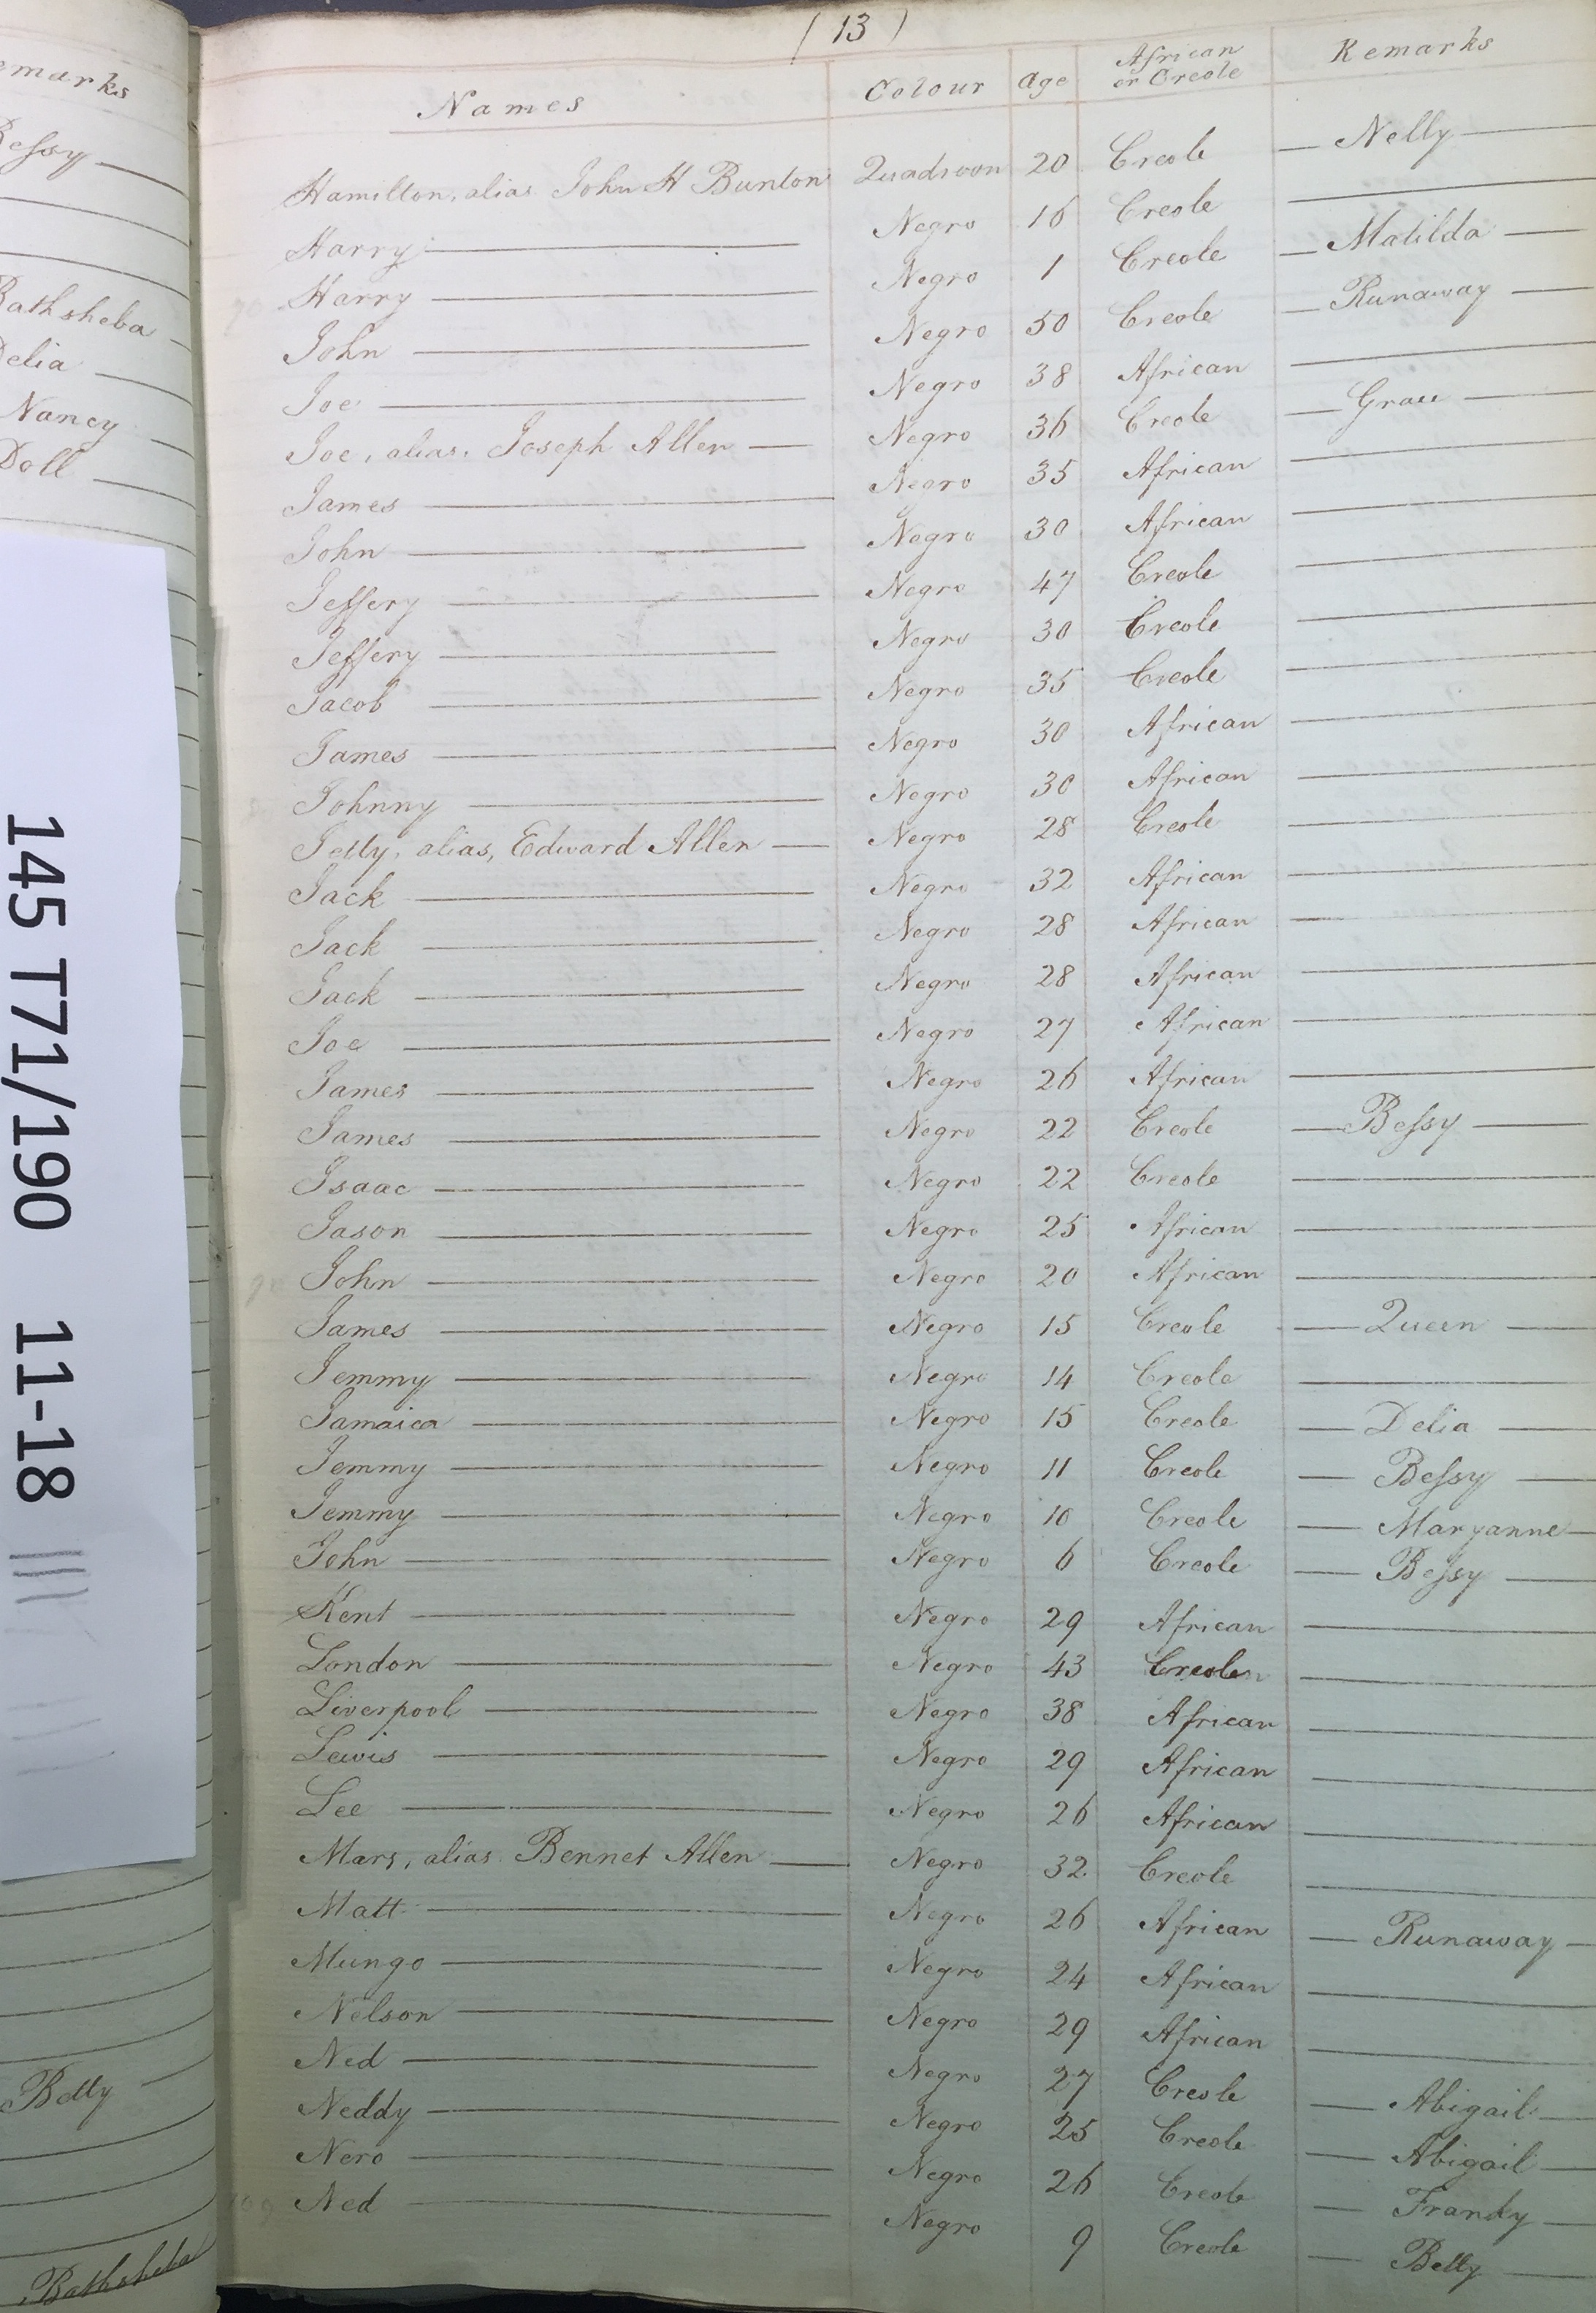 (13)
Names Colour Age African or Creole Remarks
Hamilton, alias John H Bunton Quadroon 20 Creole Nelly
Harry Negro 16 Creole
Harry Negro 1 Creole Matilda
John Negro 50 Creole Runaway
Joe Negro 38 African
Joe, alias, Joseph Allen Negro 36 Creole Grace
James Negro 35 African
John Negro 30 African
Jeffery Negro 47 Creole
Jeffery Negro 30 Creole
Jacob Negro 35 Creole
James Negro 30 African
Johnny Negro 30 African
Jetty, alias, Edward Allen Negro 28 Creole
Jack Negro 32 African
Jack Negro 28 African
Jack Negro 28 African
Joe Negro 27 African
James Negro 26 African
James Negro 22 Creole Bessy
Isaac Negro 22 Creole
Jason Negro 25 African
John Negro 20 African
James Negro 15 Creole Queen
Jemmy Negro 14 Creole
Jamaica Negro 15 Creole Delia
Jemmy Negro 11 Creole Bessy
Jemmy Negro 10 Creole Maryanne
John Negro 6 Creole Bessy
Kent Negro 29 African
London Negro 43 Creole
Liverpool Negro 38 African
Lewis Negro 29 African
Lee Negro 26 African
Mars, alias Bennet Allen Negro 32 Creole
Matt Negro 26 African Runaway
Mungo Negro 24 African
Nelson Negro 29 African
Ned Negro 27 Creole Abigail
Neddy Negro 25 Creole Abigail
Nero Negro 26 Creole
Ned Negro 9 Creole Betty
emarks
Bessy
Bathsheba
Delia
Nancy
Doll
Betty
Bathsheba
145 T71/190 11-18